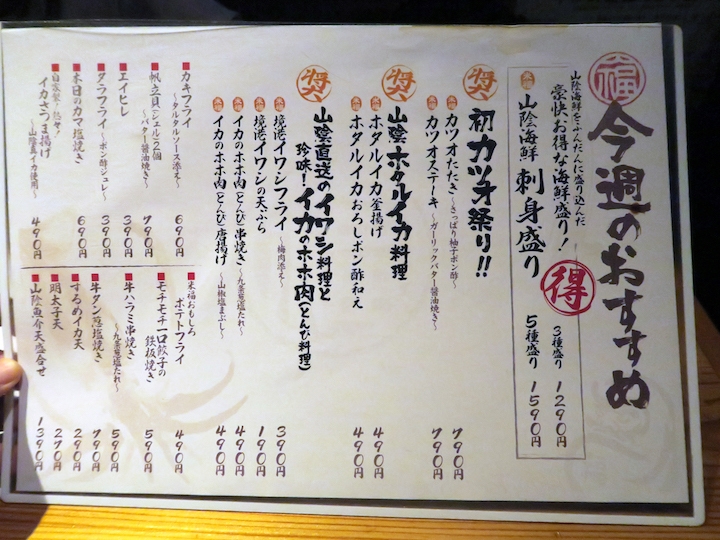 福
今週のおすすめ
山陰海鮮をふんだんに盛り込んだ
豪快お得な海鮮盛り!
山陰海鮮 刺身盛り
得
3種盛り 1290円
5種盛り 1590円
初カツオ祭り!!
カツオたたき 〜さっぱり柚子ポン酢〜 790円
カツオステーキ 〜ガーリックバター醤油焼き〜 790円
山陰ホタルイカ料理
ホタルイカ釜揚げ 490円
ホタルイカおろしポン酢和え 490円
山陰直送のイワシ料理と
珍味!イカのホホ肉(とんび料理)
境港イワシフライ 〜梅肉添え〜 390円
境港イワシの天ぷら 190円
イカのホホ肉(とんび)串焼き 〜九条葱塩たれ〜 490円
イカのホホ肉(とんび)唐揚げ 〜山椒塩まぶし〜 490円
カキフライ 〜タルタルソース添え〜 690円
帆立貝(ジェル)2個 〜バター醤油焼き〜 790円
エイヒレ 390円
タラフライ 〜ポン酢ジュレ〜 390円
本日のカマ塩焼き 690円
自家製・熱々!
イカさつま揚げ 〜山陰直イカ使用〜 490円
米福おもしろ
ポテトフライ 490円
モチモチ一口餃子の
鉄板焼き 590円
牛ハラミ串焼き 〜九条葱塩たれ〜 590円
牛タン葱塩焼き 790円
するめイカ天 290円
明太子天 270円
山陰魚介天盛合せ 1390円